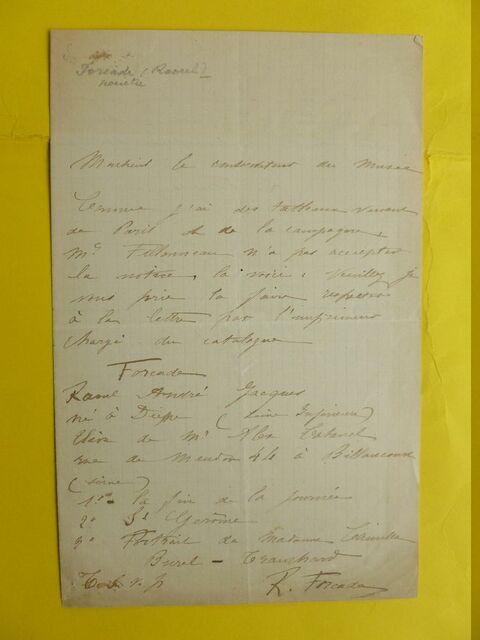 Forcade (Raoul)
Monsieur le conservateur du Musée
Comme j'ai des tableaux venant
de Paris et de la campagne,
Mr n'a pas accepter
la notice, la voici, veuillez je
vous prie la faire respecter
à la lettre par l'imprimeur
chargé du catalogue
Forcade
Raoul André Jacques
né à Dieppe (Seine Inférieure)
élève de Mr Alex Cabanel
rue de Meudon 44 à Billancourt
(Seine)
1º - la fin de la journée
2º St Gerôme
3º Portrait de Madame
Burel -
T. S. v. p
R. Forcade